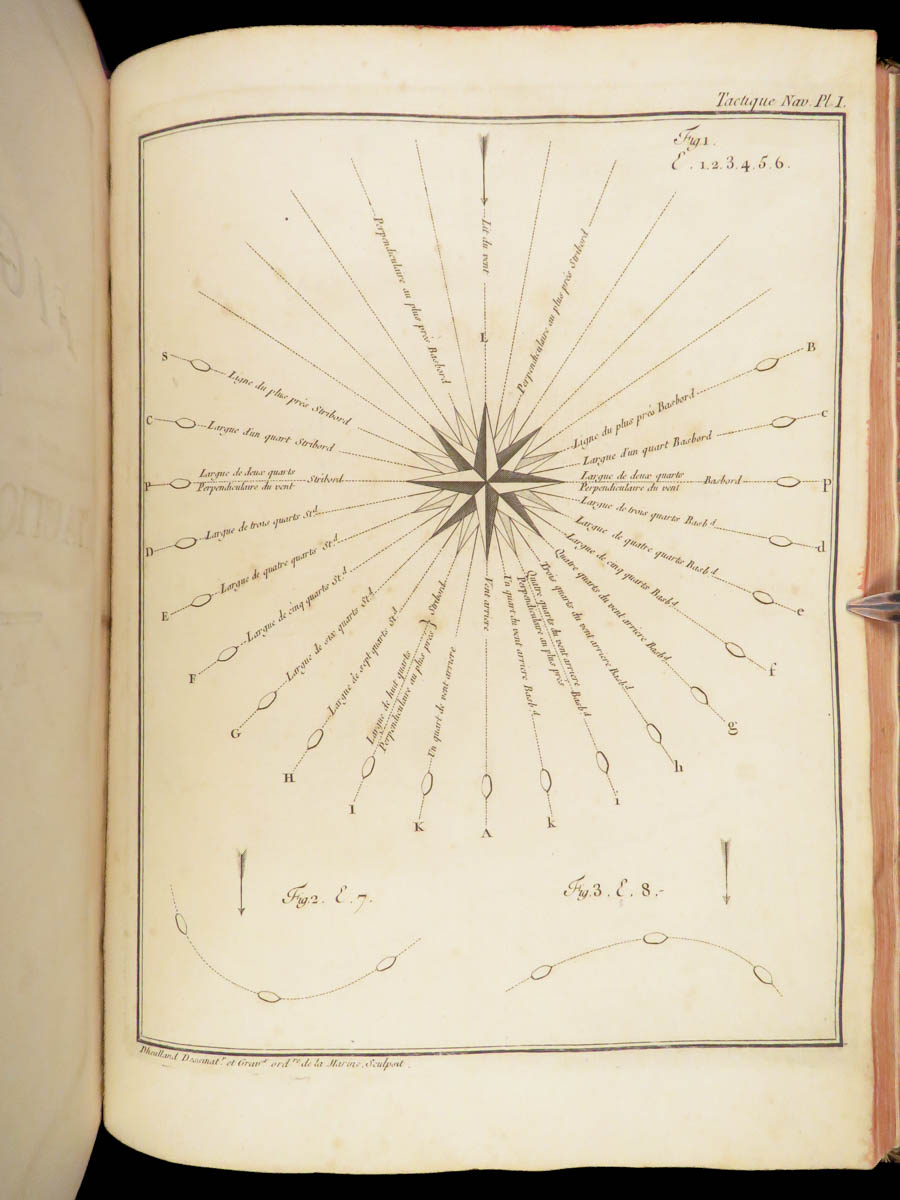 Tactique Nav. Pl. I.
Fig. 1.
E. 1.2.3.4.5.6.
Perpendiculaire au plus près Basbord
Lit du vent
Perpendiculaire au plus près Stribord
L
S
Ligne du plus près Stribord
B
Ligne du plus près Basbord
C
Largue d'un quart Stribord
c
Largue d'un quart Basbord
P
Largue de deux quarts
Perpendiculaire du vent
Stribord
Largue de deux quarts
Perpendiculaire du vent
Basbord
P
D
Largue de trois quarts St.d
Largue de trois quarts Basb.d
d
E
Largue de quatre quarts St.d
Largue de quatre quarts Basb.d
e
F
Largue de cinq quarts St.d
Largue de cinq quarts Basb.d
f
G
Largue de six quarts St.d
Quatre quarts du vent arriere Basb.d
g
H
Largue de sept quarts St.d
Trois quarts du vent arriere Basb.d
h
I
Largue de huit quarts
Perpendiculaire au plus près
Stribord
Quatre quarts du vent arriere
Perpendiculaire au plus près
Basb.d
i
K
Un quart de vent arriere
Un quart du vent arriere Basb.d
k
Vent arriere
A
Fig. 2. E. 7.
Fig. 3. E. 8.
Dheulland Dessinat.r et Grav.r ord.re de la Marine, Sculpsit.